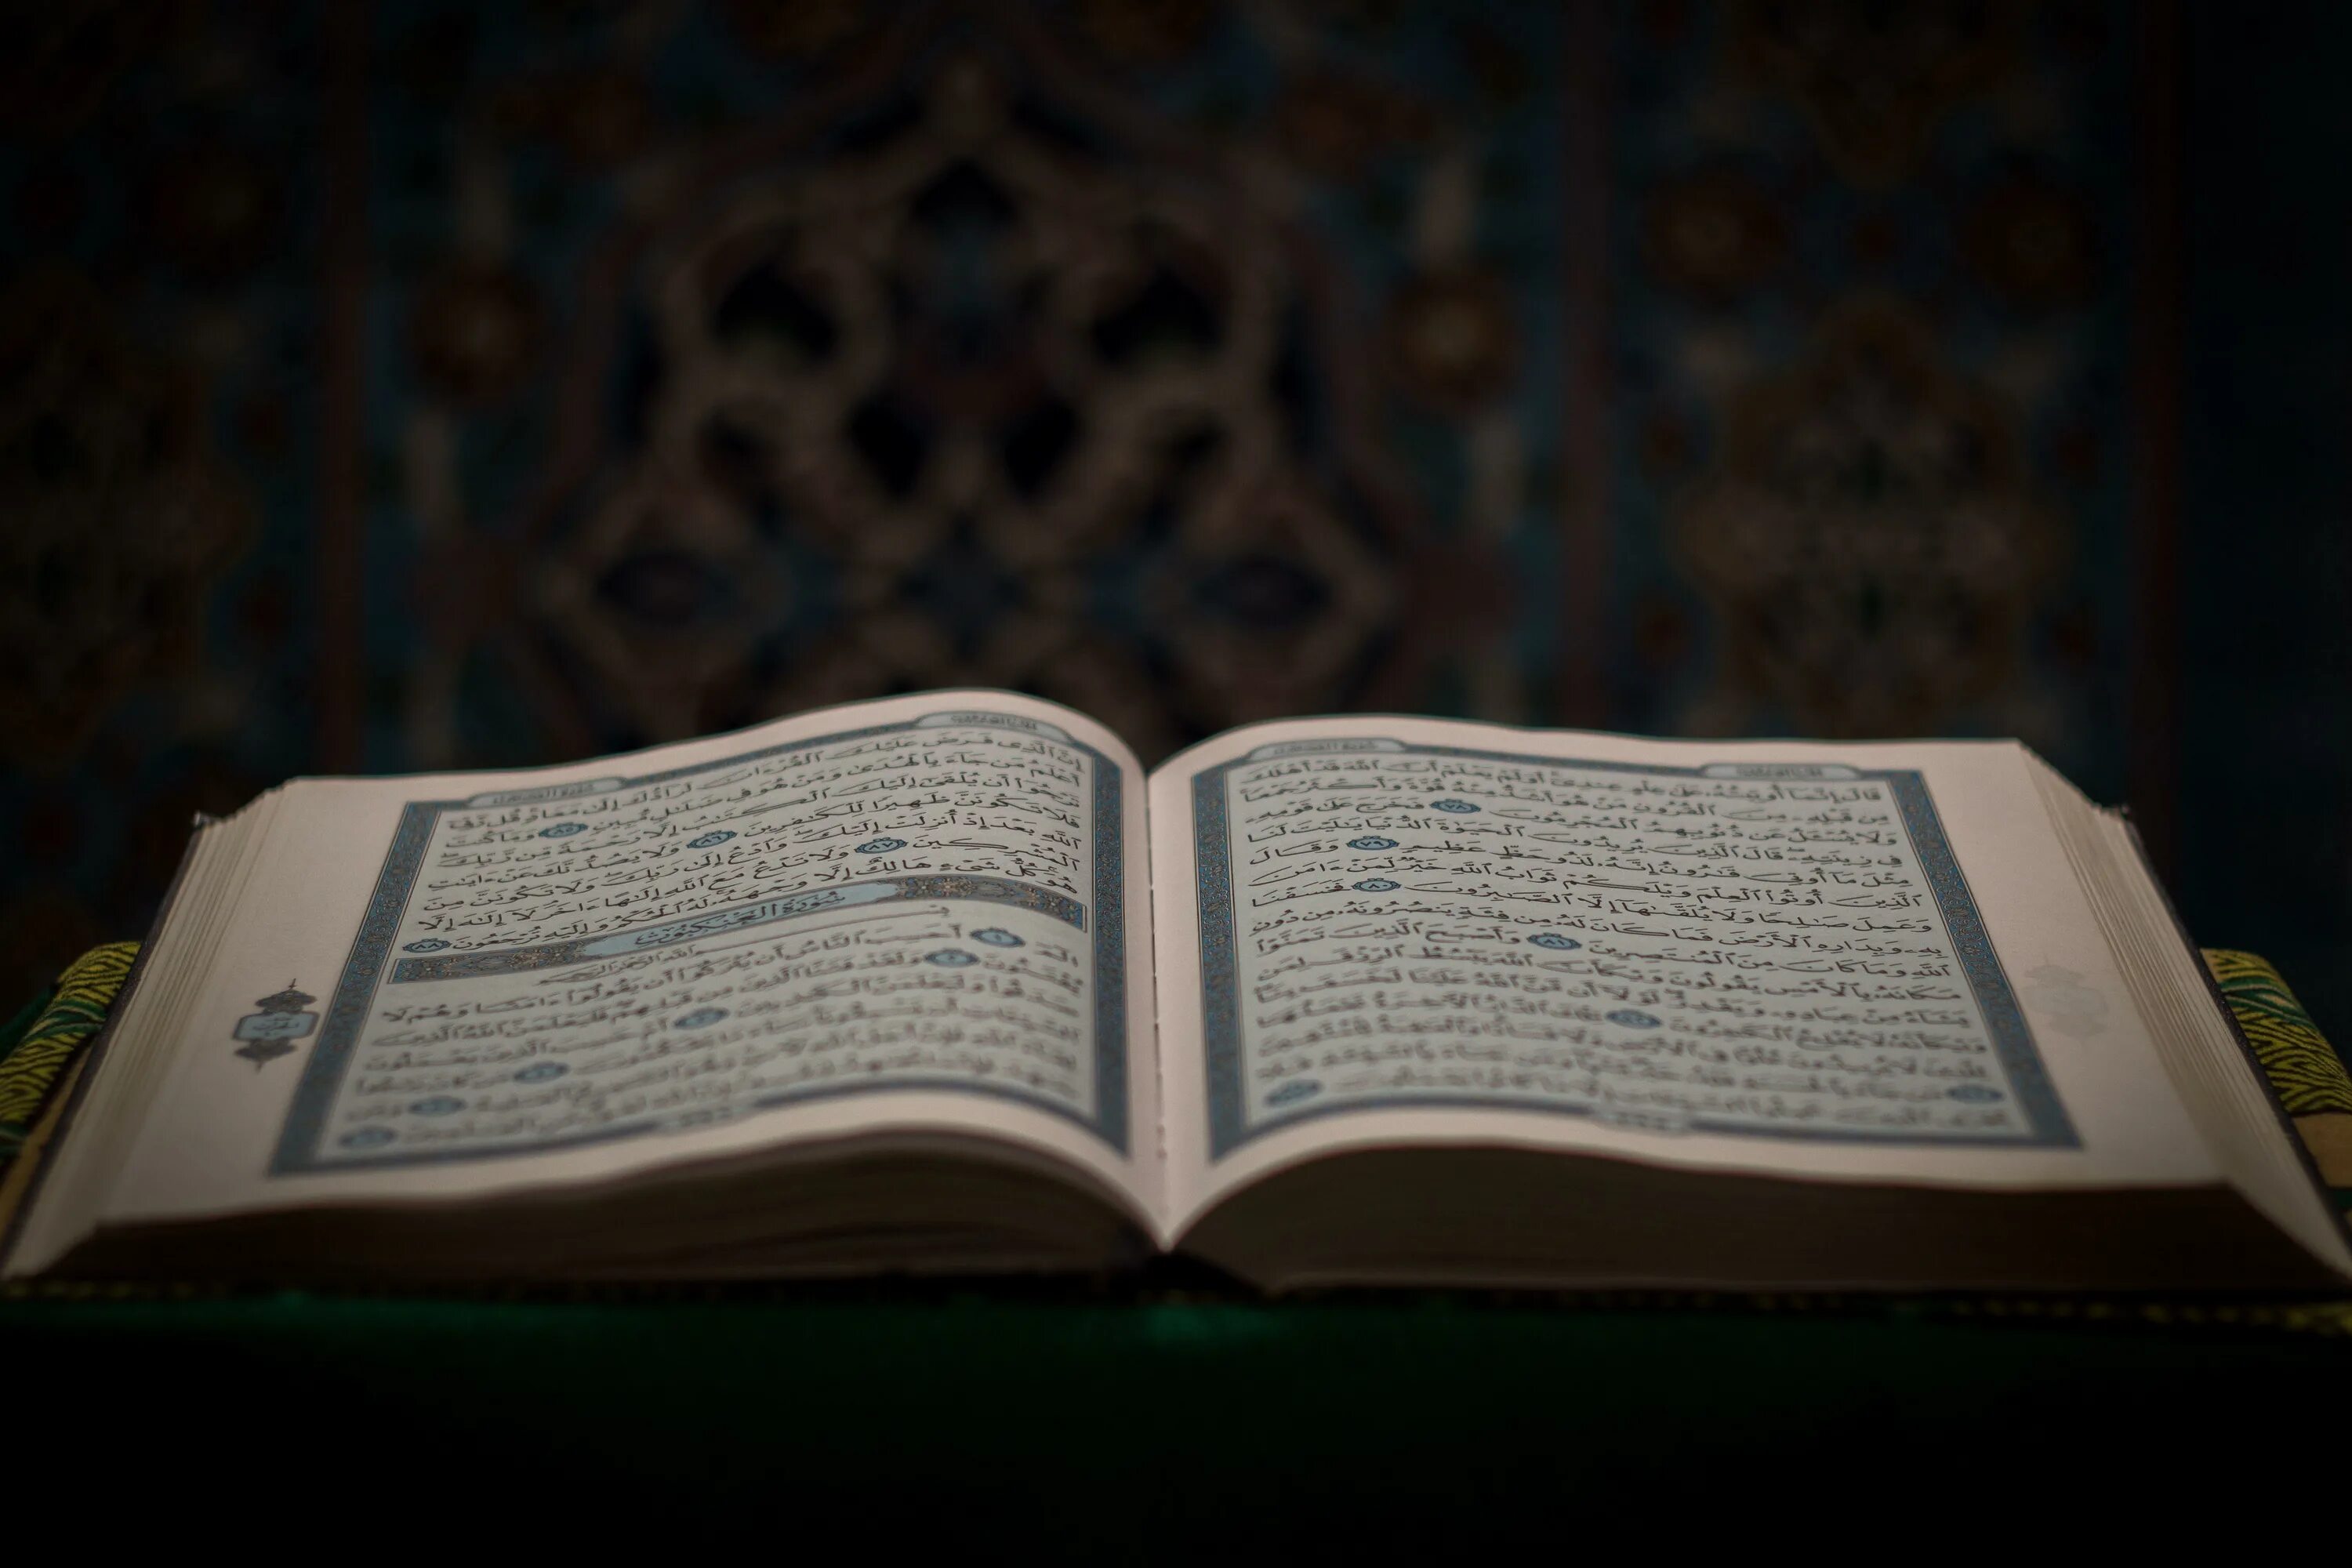 قَالَ إِنَّمَآ أُوتِيتُهُۥ عَلَىٰ عِلْمٍ عِندِىٓ أَوَلَمْ يَعْلَمْ أَنَّ ٱللَّهَ قَدْ أَهْلَكَ
مِن قَبْلِهِۦ مِنَ ٱلْقُرُونِ مَنْ هُوَ أَشَدُّ مِنْهُ قُوَّةً وَأَكْثَرُ جَمْعًا
وَلَا يُسْـَٔلُ عَن ذُنُوبِهِمُ ٱلْمُجْرِمُونَ ٧٨ فَخَرَجَ عَلَىٰ قَوْمِهِۦ
فِى زِينَتِهِۦ قَالَ ٱلَّذِينَ يُرِيدُونَ ٱلْحَيَوٰةَ ٱلدُّنْيَا يَٰلَيْتَ لَنَا
مِثْلَ مَآ أُوتِىَ قَٰرُونُ إِنَّهُۥ لَذُو حَظٍّ عَظِيمٍ ٧٩ وَقَالَ
ٱلَّذِينَ أُوتُوا۟ ٱلْعِلْمَ وَيْلَكُمْ ثَوَابُ ٱللَّهِ خَيْرٌ لِّمَنْ ءَامَنَ
وَعَمِلَ صَٰلِحًا وَلَا يُلَقَّىٰهَآ إِلَّا ٱلصَّٰبِرُونَ ٨٠ فَخَسَفْنَا
بِهِۦ وَبِدَارِهِ ٱلْأَرْضَ فَمَا كَانَ لَهُۥ مِن فِئَةٍ يَنصُرُونَهُۥ مِن دُونِ
ٱللَّهِ وَمَا كَانَ مِنَ ٱلْمُنتَصِرِينَ ٨١ وَأَصْبَحَ ٱلَّذِينَ تَمَنَّوْا۟
مَكَانَهُۥ بِٱلْأَمْسِ يَقُولُونَ وَيْكَأَنَّ ٱللَّهَ يَبْسُطُ ٱلرِّزْقَ لِمَن
يَشَآءُ مِنْ عِبَادِهِۦ وَيَقْدِرُ لَوْلَآ أَن مَّنَّ ٱللَّهُ عَلَيْنَا لَخَسَفَ بِنَا
وَيْكَأَنَّهُۥ لَا يُفْلِحُ ٱلْكَٰفِرُونَ ٨٢ تِلْكَ ٱلدَّارُ ٱلْءَاخِرَةُ نَجْعَلُهَا
لِلَّذِينَ لَا يُرِيدُونَ عُلُوًّا فِى ٱلْأَرْضِ وَلَا فَسَادًا وَٱلْعَٰقِبَةُ لِلْمُتَّقِينَ
إِنَّ ٱلَّذِى فَرَضَ عَلَيْكَ ٱلْقُرْءَانَ لَرَآدُّكَ إِلَىٰ مَعَادٍ قُل رَّبِّىٓ
أَعْلَمُ مَن جَآءَ بِٱلْهُدَىٰ وَمَنْ هُوَ فِى ضَلَٰلٍ مُّبِينٍ ٨٥ وَمَا كُنتَ
تَرْجُوٓا۟ أَن يُلْقَىٰٓ إِلَيْكَ ٱلْكِتَٰبُ إِلَّا رَحْمَةً مِّن رَّبِّكَ
فَلَا تَكُونَنَّ ظَهِيرًا لِّلْكَٰفِرِينَ ٨٦ وَلَا يَصُدُّنَّكَ عَنْ ءَايَٰتِ
ٱللَّهِ بَعْدَ إِذْ أُنزِلَتْ إِلَيْكَ وَٱدْعُ إِلَىٰ رَبِّكَ وَلَا تَكُونَنَّ مِنَ
ٱلْمُشْرِكِينَ ٨٧ وَلَا تَدْعُ مَعَ ٱللَّهِ إِلَٰهًا ءَاخَرَ لَآ إِلَٰهَ إِلَّا
هُوَ كُلُّ شَىْءٍ هَالِكٌ إِلَّا وَجْهَهُۥ لَهُ ٱلْحُكْمُ وَإِلَيْهِ تُرْجَعُونَ ٨٨
سُورَةُ العَنكَبُوتِ
بِسْمِ ٱللَّهِ ٱلرَّحْمَٰنِ ٱلرَّحِيمِ
الٓمٓ ١ أَحَسِبَ ٱلنَّاسُ أَن يُتْرَكُوٓا۟ أَن يَقُولُوٓا۟ ءَامَنَّا وَهُمْ لَا
يُفْتَنُونَ ٢ وَلَقَدْ فَتَنَّا ٱلَّذِينَ مِن قَبْلِهِمْ فَلَيَعْلَمَنَّ ٱللَّهُ ٱلَّذِينَ
صَدَقُوا۟ وَلَيَعْلَمَنَّ ٱلْكَٰذِبِينَ ٣ أَمْ حَسِبَ ٱلَّذِينَ يَعْمَلُونَ